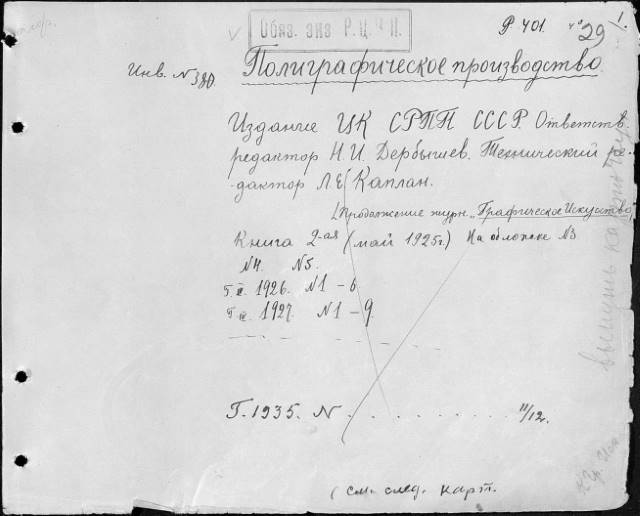 Обяз. экз Р.Ц.К П.
Р 401. 29 1.
Инв. N 380.
Полиграфическое производство.
Издание ЦК СРПП СССР. Ответств.
редактор Н.И. Дербышев. Технический ре-
дактор Л.Е. Каплан.
(Продолжение журн. „Графическое Искусство"
Книга 2-ая (май 1925г.) На обложке N3
N4. N5.
1926. N1 - 6.
1927. N1 - 9.
Г. 1935. N . . . . . . . . . 11/12.
(см. след. карт.
вынуть